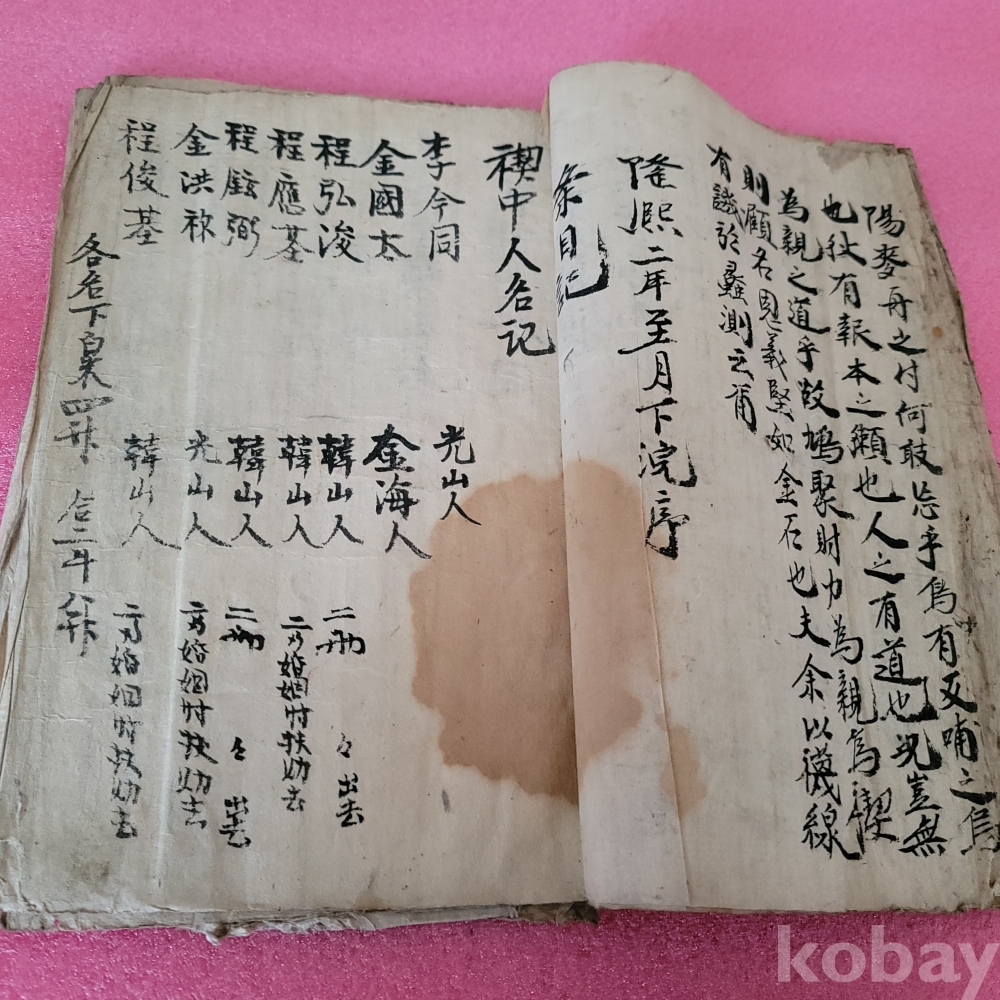 陽麥舟之付何敢忘乎烏有反哺之烏
也秋有報本之獺也人之有道也況豈無
為親之道乎故鳩聚財力為親為禊
則顧名思義堅如金石也夫余以襪線
有譏於蠡測云爾
隆熙二年至月下浣序
条目記
禊中人名記
李今同 光山人
金國太 金海人
程弘浚 韓山人 二册 々出去
程應基 韓山人 二方婚姻時扶助去
程鉉弼 韓山人 二册 々出去
金洪祚 光山人 二方婚姻時扶助去
程俊基 韓山人 二方婚姻時扶助去
各名下粟四升 合二斗八升
kobay